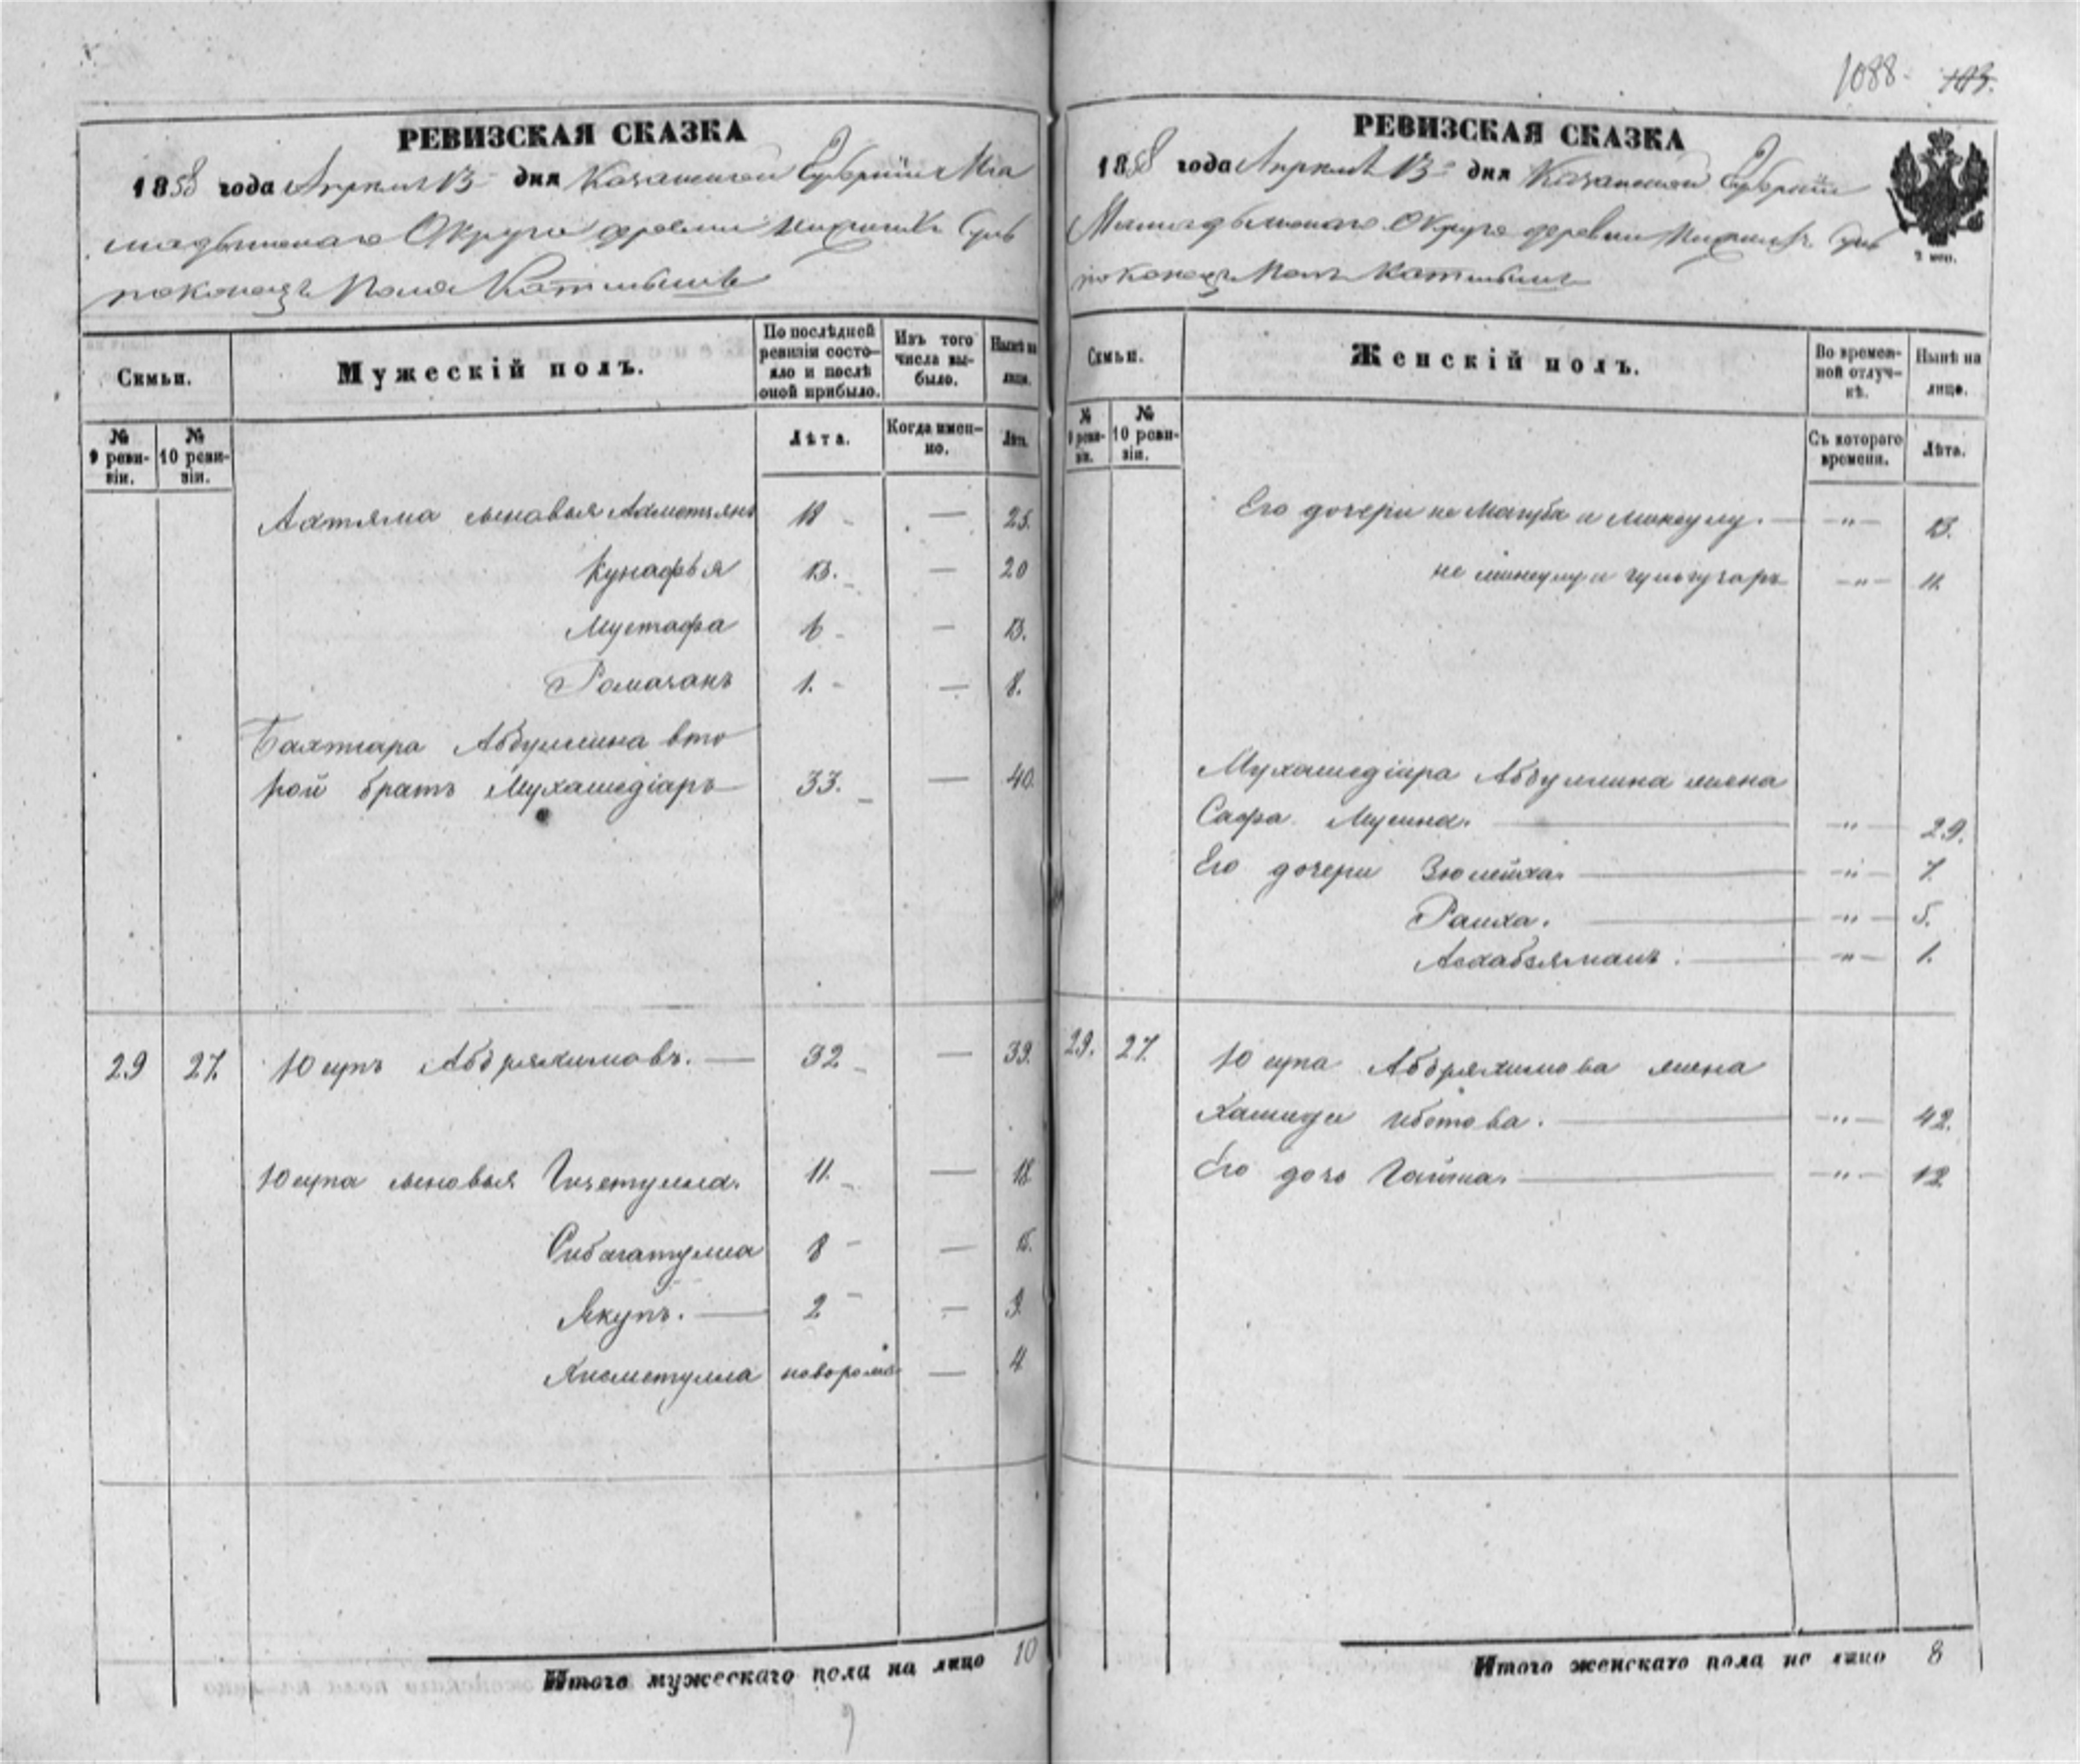 1088. 103.
РЕВИЗСКАЯ СКАЗКА
1858 года Апреля 13 дня Казанской Губернiи Ма
мадышскаго Округа деревни
Починокъ
Семьи.
Мужескiй полъ.
По послѣдней ревизiи состояло и послѣ оной прибыло.
Изъ того числа выбыло.
Нынѣ на лицо.
№ 9 ревизiи.
№ 10 ревизiи.
Лѣта.
Когда именно.
Лѣта.
Ахтяма сыновья Ахметзянъ 18 — 25.
Кунафья 13. — 20
Мустафа 6 — 13.
Рамазанъ 1. — 8.
Бахтiара Абдуллина вто
рой братъ Мухамедiаръ 33. — 40.
29 27. Юсупъ Абдряхимовъ. — 32 — 39.
Юсупа сыновья Гизетулла. 11. — 18
Сибагатулла 8 — 15.
Якупъ. — 2 — 9.
Хисметулла новорож — 4
Итого мужескаго пола на лицо 10
РЕВИЗСКАЯ СКАЗКА
1858 года Апреля 13 дня Казанской Губернiи
Мамадышскаго Округа деревни
Семьи.
Женскiй полъ.
Во временной отлучкѣ.
Нынѣ на лицо.
№ 9 ревизiи.
№ 10 ревизiи.
Съ котораго времени.
Лѣта.
Его дочери не — " — 13.
не — " — 11.
Мухамедiара Абдуллина жена
Сафа Мусина. — " — 29.
Его дочери Зюлейха. — " — 7.
Раиха. — " — 5.
— " — 1.
29. 27. Юсупа Абдряхимова жена
— " — 42.
Его дочь Гайша. — " — 12
Итого женскаго пола на лицо 8